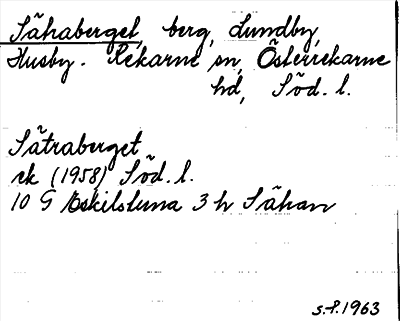 Såhaberget, berg, Lundby,
Husby-Rekarne sn, Österrekarne
hd, Söd. l.
Sätraberget
ek (1958) Söd. l.
10 G Eskilstuna 3 h Såhan
S.P. 1963